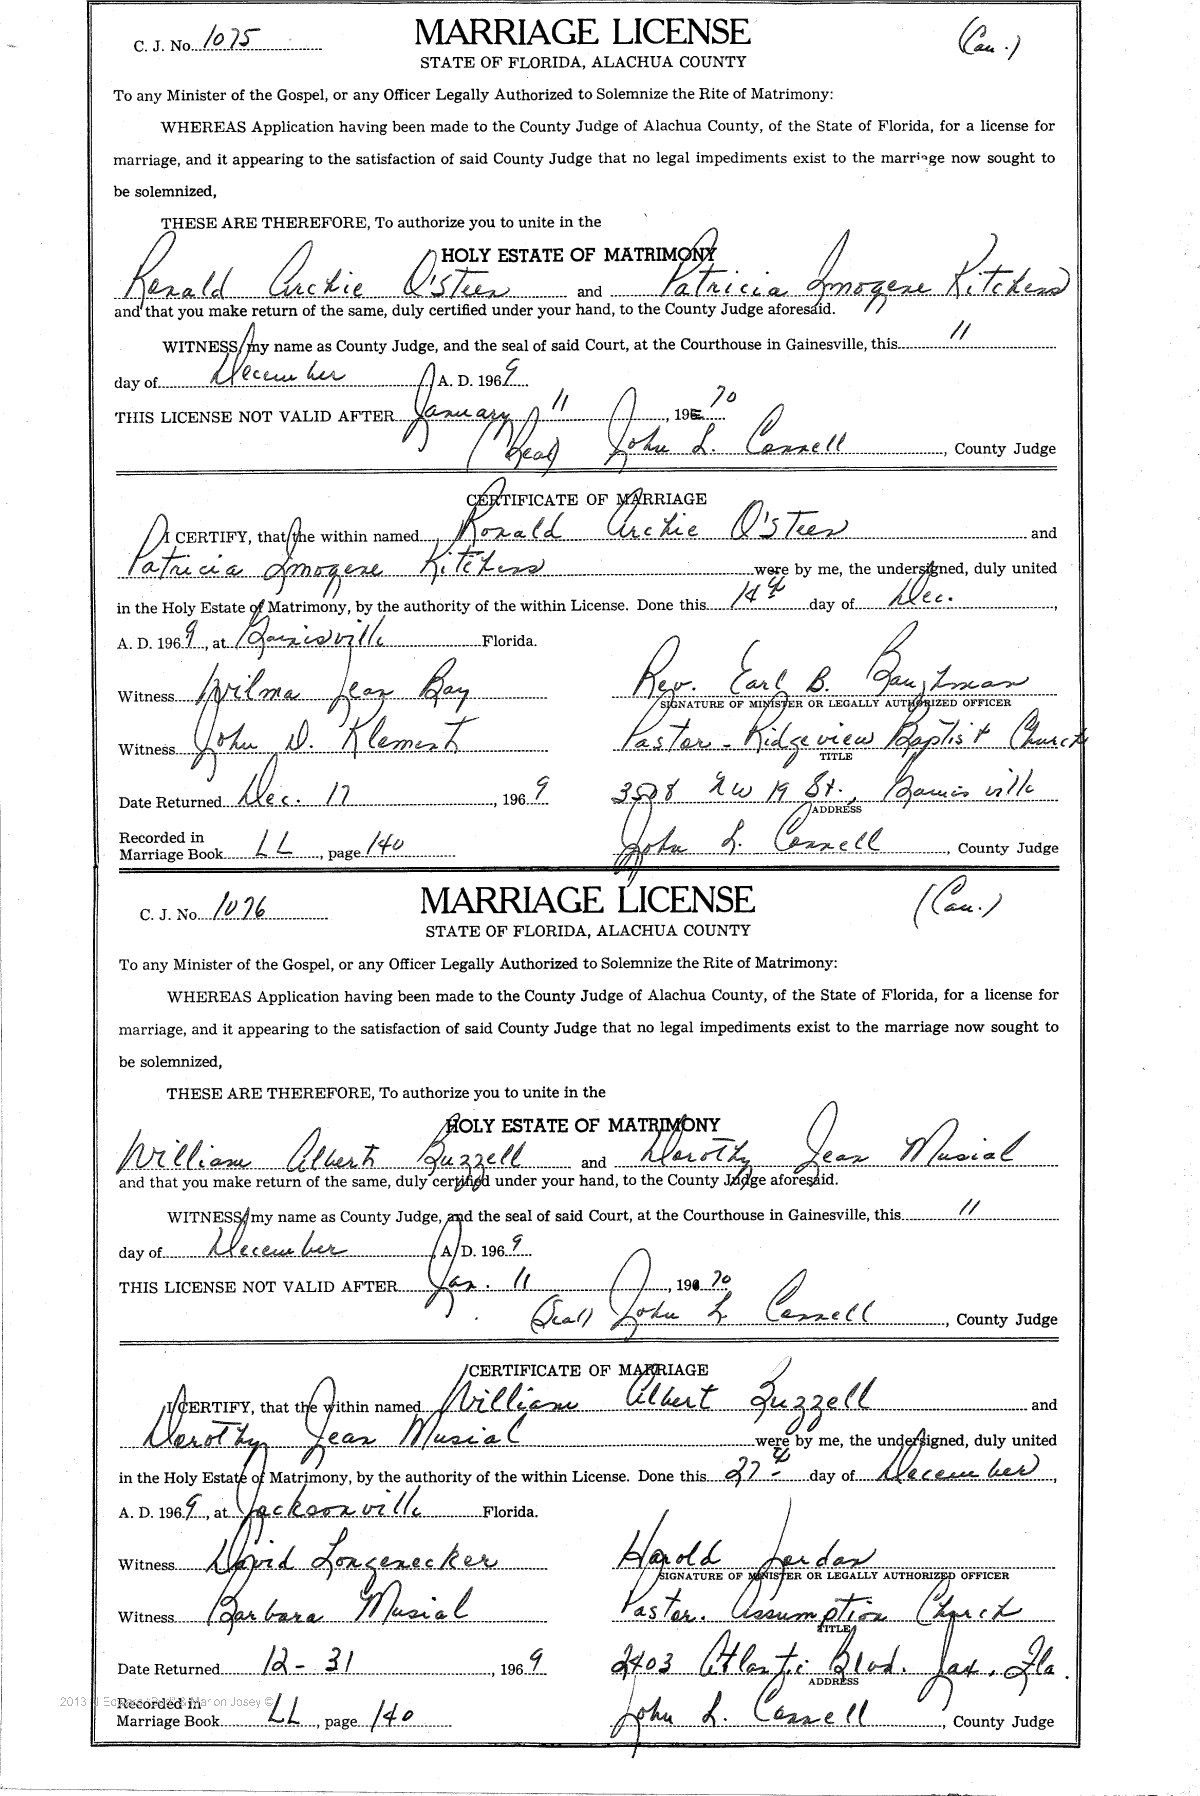 C. J. No. 1075
MARRIAGE LICENSE
(Cau.)
STATE OF FLORIDA, ALACHUA COUNTY
To any Minister of the Gospel, or any Officer Legally Authorized to Solemnize the Rite of Matrimony:
WHEREAS Application having been made to the County Judge of Alachua County, of the State of Florida, for a license for
marriage, and it appearing to the satisfaction of said County Judge that no legal impediments exist to the marriage now sought to
be solemnized,
THESE ARE THEREFORE, To authorize you to unite in the
HOLY ESTATE OF MATRIMONY
Ronald Archie O'Steen and Patricia Imogene Kitchens
and that you make return of the same, duly certified under your hand, to the County Judge aforesaid.
WITNESS my name as County Judge, and the seal of said Court, at the Courthouse in Gainesville, this 11
day of December A. D. 1969
THIS LICENSE NOT VALID AFTER January 11, 1970
(Seal) John L. Connell, County Judge
CERTIFICATE OF MARRIAGE
I CERTIFY, that the within named Ronald Archie O'Steen and
Patricia Imogene Kitchens were by me, the undersigned, duly united
in the Holy Estate of Matrimony, by the authority of the within License. Done this 14th day of Dec.,
A. D. 1969, at Gainisville Florida.
Witness Wilma Jean Bay Rev. Earl B. Baughman
SIGNATURE OF MINISTER OR LEGALLY AUTHORIZED OFFICER
Witness John D. Klement Pastor - Ridgeview Baptist Church
TITLE
Date Returned Dec. 17, 1969 3508 NW 19 St., Gainisville
ADDRESS
Recorded in
Marriage Book LL, page 140 John L. Connell, County Judge
C. J. No. 1076
MARRIAGE LICENSE
(Cau.)
STATE OF FLORIDA, ALACHUA COUNTY
To any Minister of the Gospel, or any Officer Legally Authorized to Solemnize the Rite of Matrimony:
WHEREAS Application having been made to the County Judge of Alachua County, of the State of Florida, for a license for
marriage, and it appearing to the satisfaction of said County Judge that no legal impediments exist to the marriage now sought to
be solemnized,
THESE ARE THEREFORE, To authorize you to unite in the
HOLY ESTATE OF MATRIMONY
William Albert Buzzell and Dorothy Jean Musial
and that you make return of the same, duly certified under your hand, to the County Judge aforesaid.
WITNESS my name as County Judge, and the seal of said Court, at the Courthouse in Gainesville, this 11
day of December A. D. 1969
THIS LICENSE NOT VALID AFTER Jan. 11, 1970
(Seal) John L. Connell, County Judge
CERTIFICATE OF MARRIAGE
I CERTIFY, that the within named William Albert Buzzell and
Dorothy Jean Musial were by me, the undersigned, duly united
in the Holy Estate of Matrimony, by the authority of the within License. Done this 27th day of December,
A. D. 1969, at Jacksonville Florida.
Witness David Longenecker Harold Jordan
SIGNATURE OF MINISTER OR LEGALLY AUTHORIZED OFFICER
Witness Barbara Musial Pastor. Assumption Church
TITLE
Date Returned 12-31, 1969 2403 Atlantic Blvd. Jax. Fla.
ADDRESS
Recorded in
Marriage Book LL, page 140 John L. Connell, County Judge